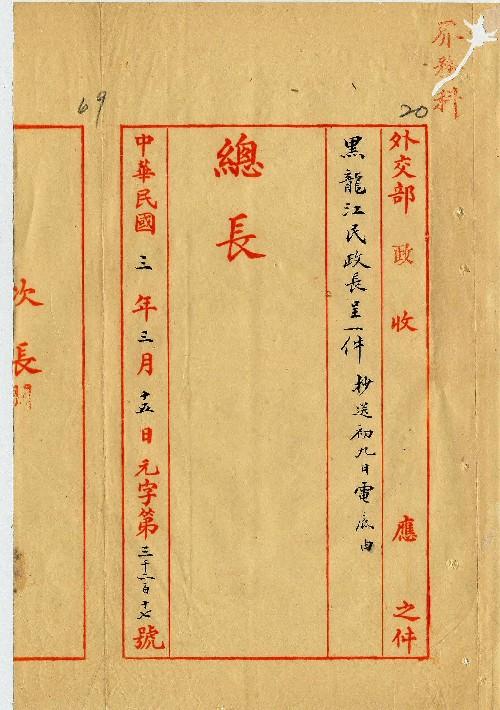 界務科
20
外交部政收應之件
黑龍江民政長呈一件 抄送初九日電底由
總長
中華民國三年三月十五日元字第三千二百十七號
69
次長